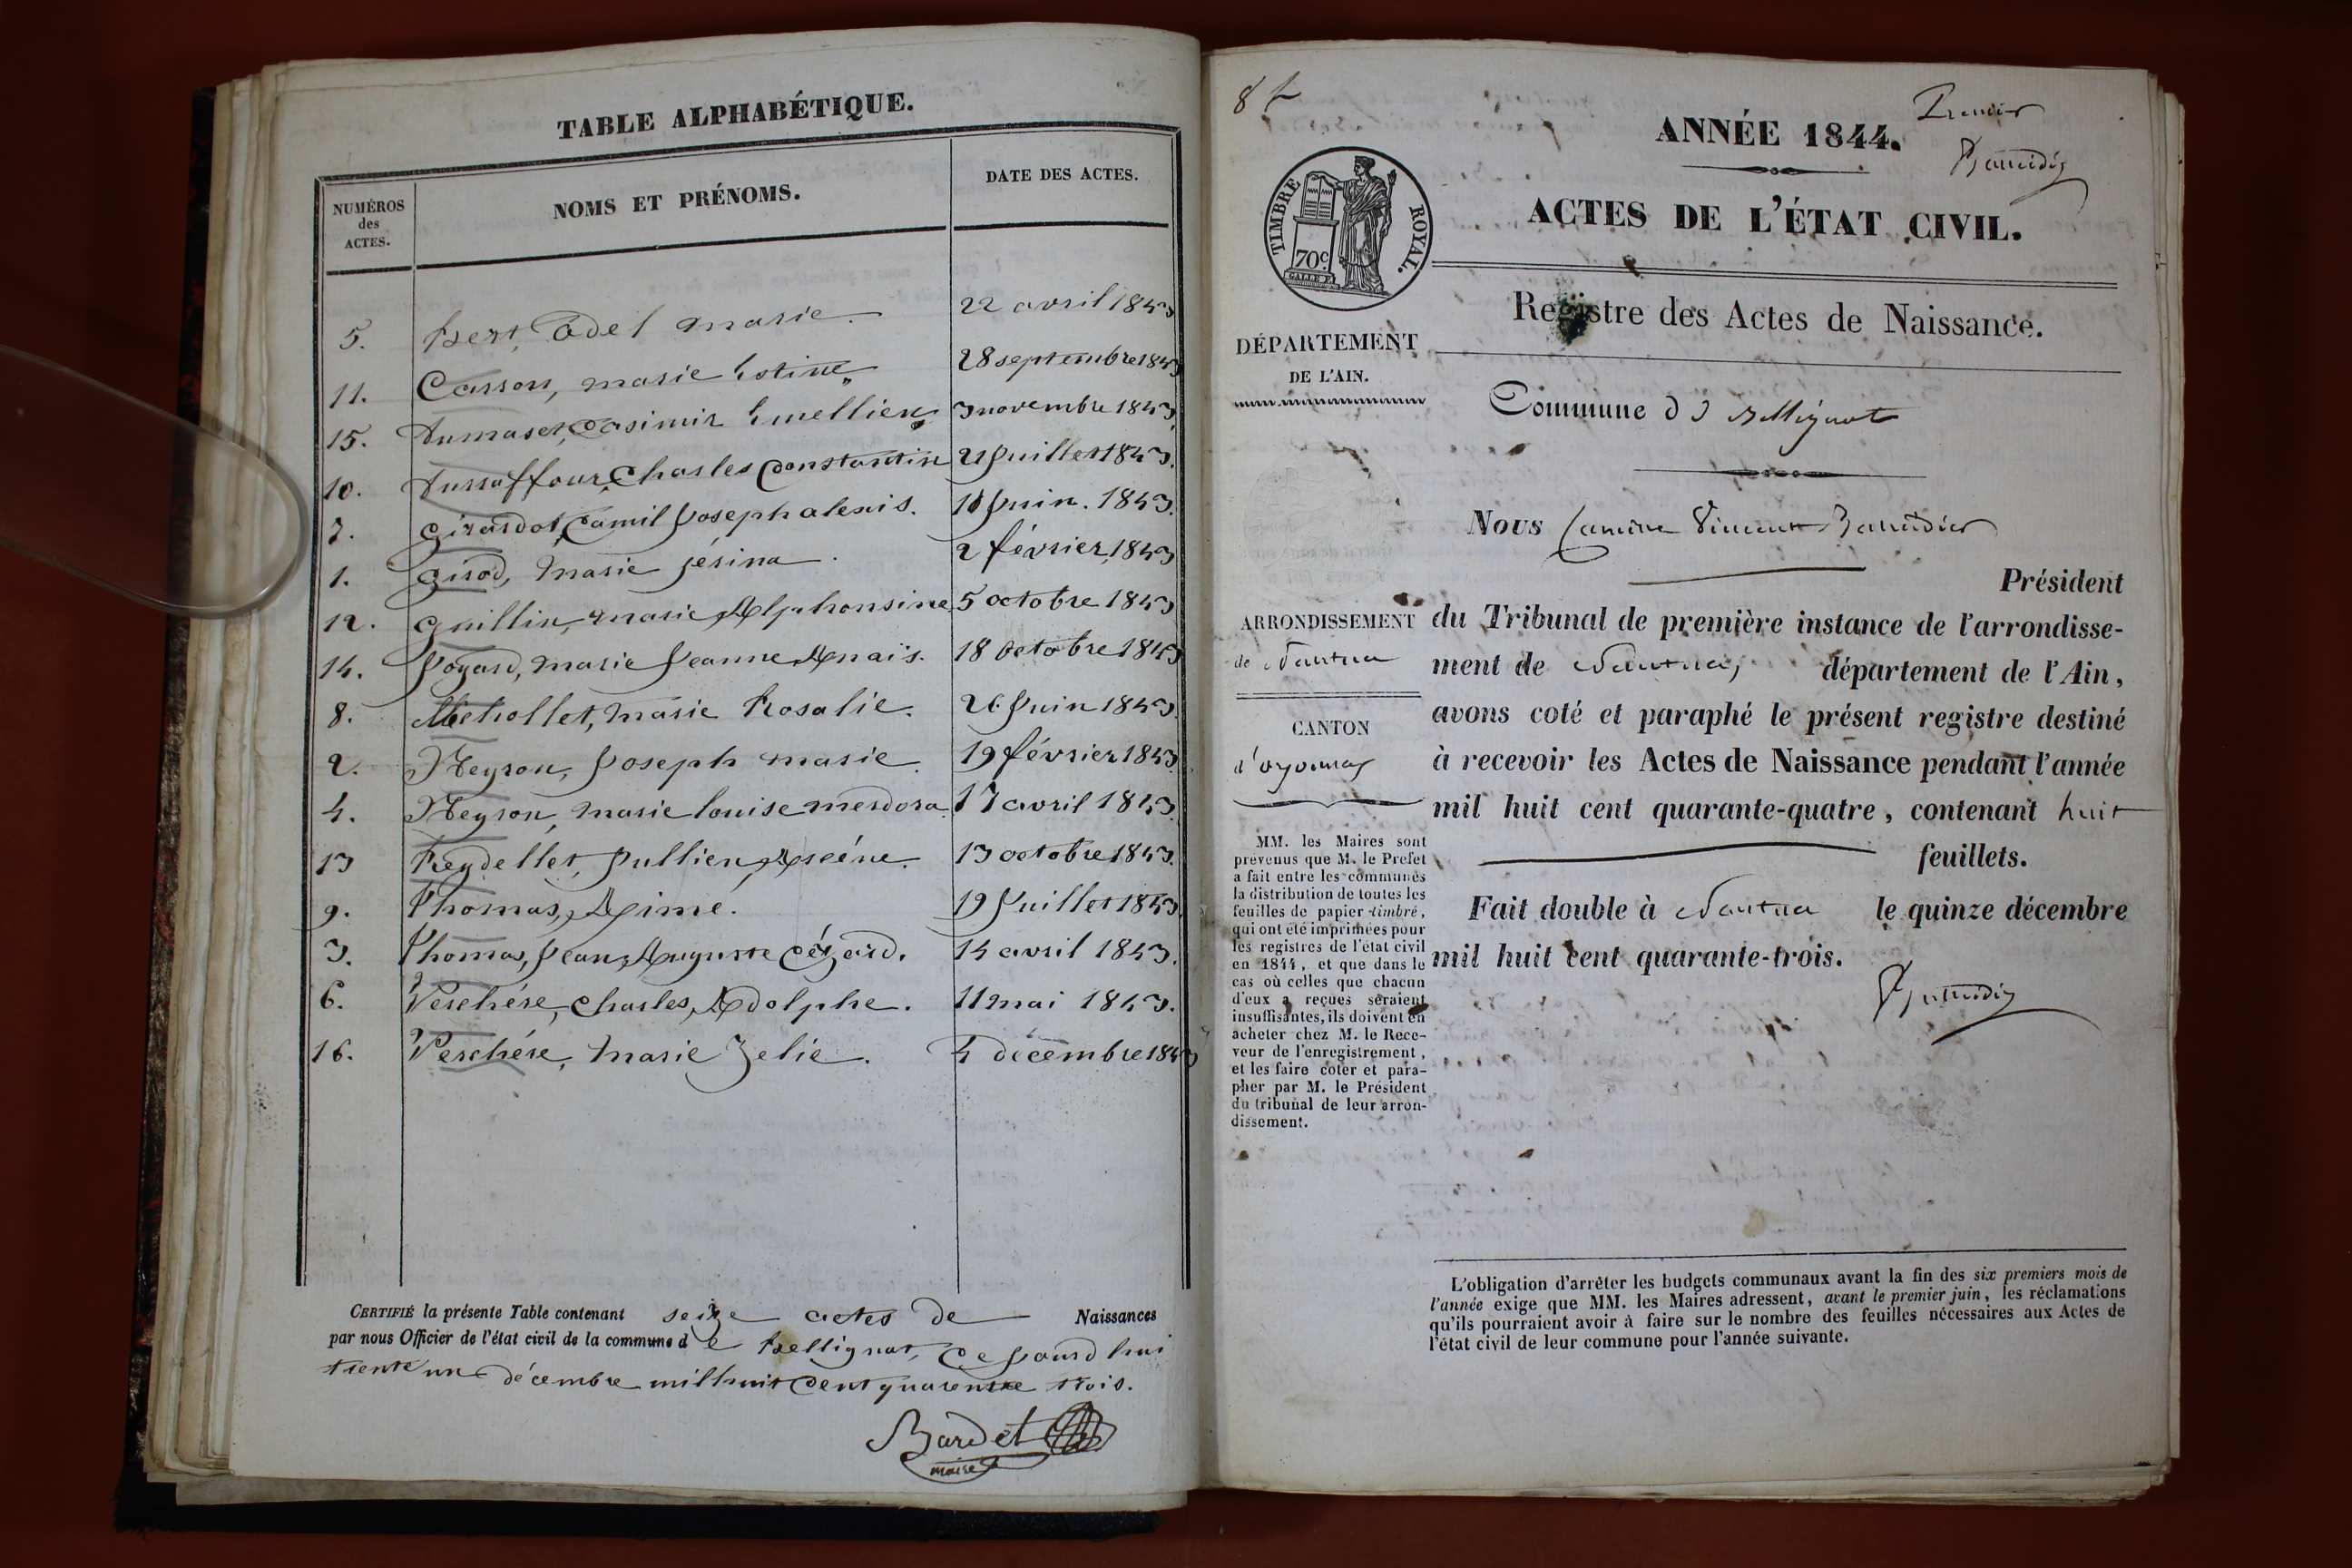 TABLE ALPHABÉTIQUE.
NUMÉROS
des
ACTES.
NOMS ET PRÉNOMS.
DATE DES ACTES.
5. Bert, Adel marie. 22 avril 1843
11. Casson, marie Estine 28 septembre 1843
15. Dumaset, Casimir Emellien 3 novembre 1843.
10. Dussuffour, Charles Constantin 21 Juillet 1843.
7. Girardot, Camil Joseph alexis. 10 Juin. 1843.
1. Girod, Marie Jésina. 2 février, 1843
12. Guillin, marie Alphonsine 5 octobre 1843
14. Joyard, marie Jeanne Anaïs. 18 octobre 1843
8. Michollet, marie Rosalie. 26 Juin 1843.
2. Neyron, Joseph marie. 19 février 1843.
4. Neyron, marie louise merdora. 17 avril 1843.
13 Reydellet, Jullien, Arcéne. 13 octobre 1843.
9. Thomas, Aimé. 19 Juillet 1843.
3. Thomas, Jean, Auguste Cézard. 14 avril 1843.
6. Verchére, Charles, Adolphe. 11 mai 1843.
16. Verchére, Marie Zelie. 4 décembre 1843
CERTIFIÉ la présente Table contenant seize actes de Naissances
par nous Officier de l'état civil de la commune de Bellignat, ce Jourd'hui
trente un décembre mil huit cent quarente trois.
Bardet
maire
8 f
ANNÉE 1844.
Premier
TIMBRE ROYAL.
70c
ACTES DE L'ÉTAT CIVIL.
Registre des Actes de Naissance.
DÉPARTEMENT
DE L'AIN.
Commune de Bellignat
Nous Vincent
Président
ARRONDISSEMENT
de Nantua
CANTON
d'oyonnax
du Tribunal de première instance de l'arrondisse-
ment de Nantua, département de l'Ain,
avons coté et paraphé le présent registre destiné
à recevoir les Actes de Naissance pendant l'année
mil huit cent quarante-quatre, contenant huit
feuillets.
Fait double à Nantua le quinze décembre
mil huit cent quarante-trois.
MM. les Maires sont
prévenus que M. le Préfet
a fait entre les communes
la distribution de toutes les
feuilles de papier timbré,
qui ont été imprimées pour
les registres de l'état civil
en 1844, et que dans le
cas où celles que chacun
d'eux a reçues seraient
insuffisantes, ils doivent en
acheter chez M. le Rece-
veur de l'enregistrement,
et les faire coter et para-
pher par M. le Président
du tribunal de leur arron-
dissement.
L'obligation d'arrêter les budgets communaux avant la fin des six premiers mois de
l'année exige que MM. les Maires adressent, avant le premier juin, les réclamations
qu'ils pourraient avoir à faire sur le nombre des feuilles nécessaires aux Actes de
l'état civil de leur commune pour l'année suivante.